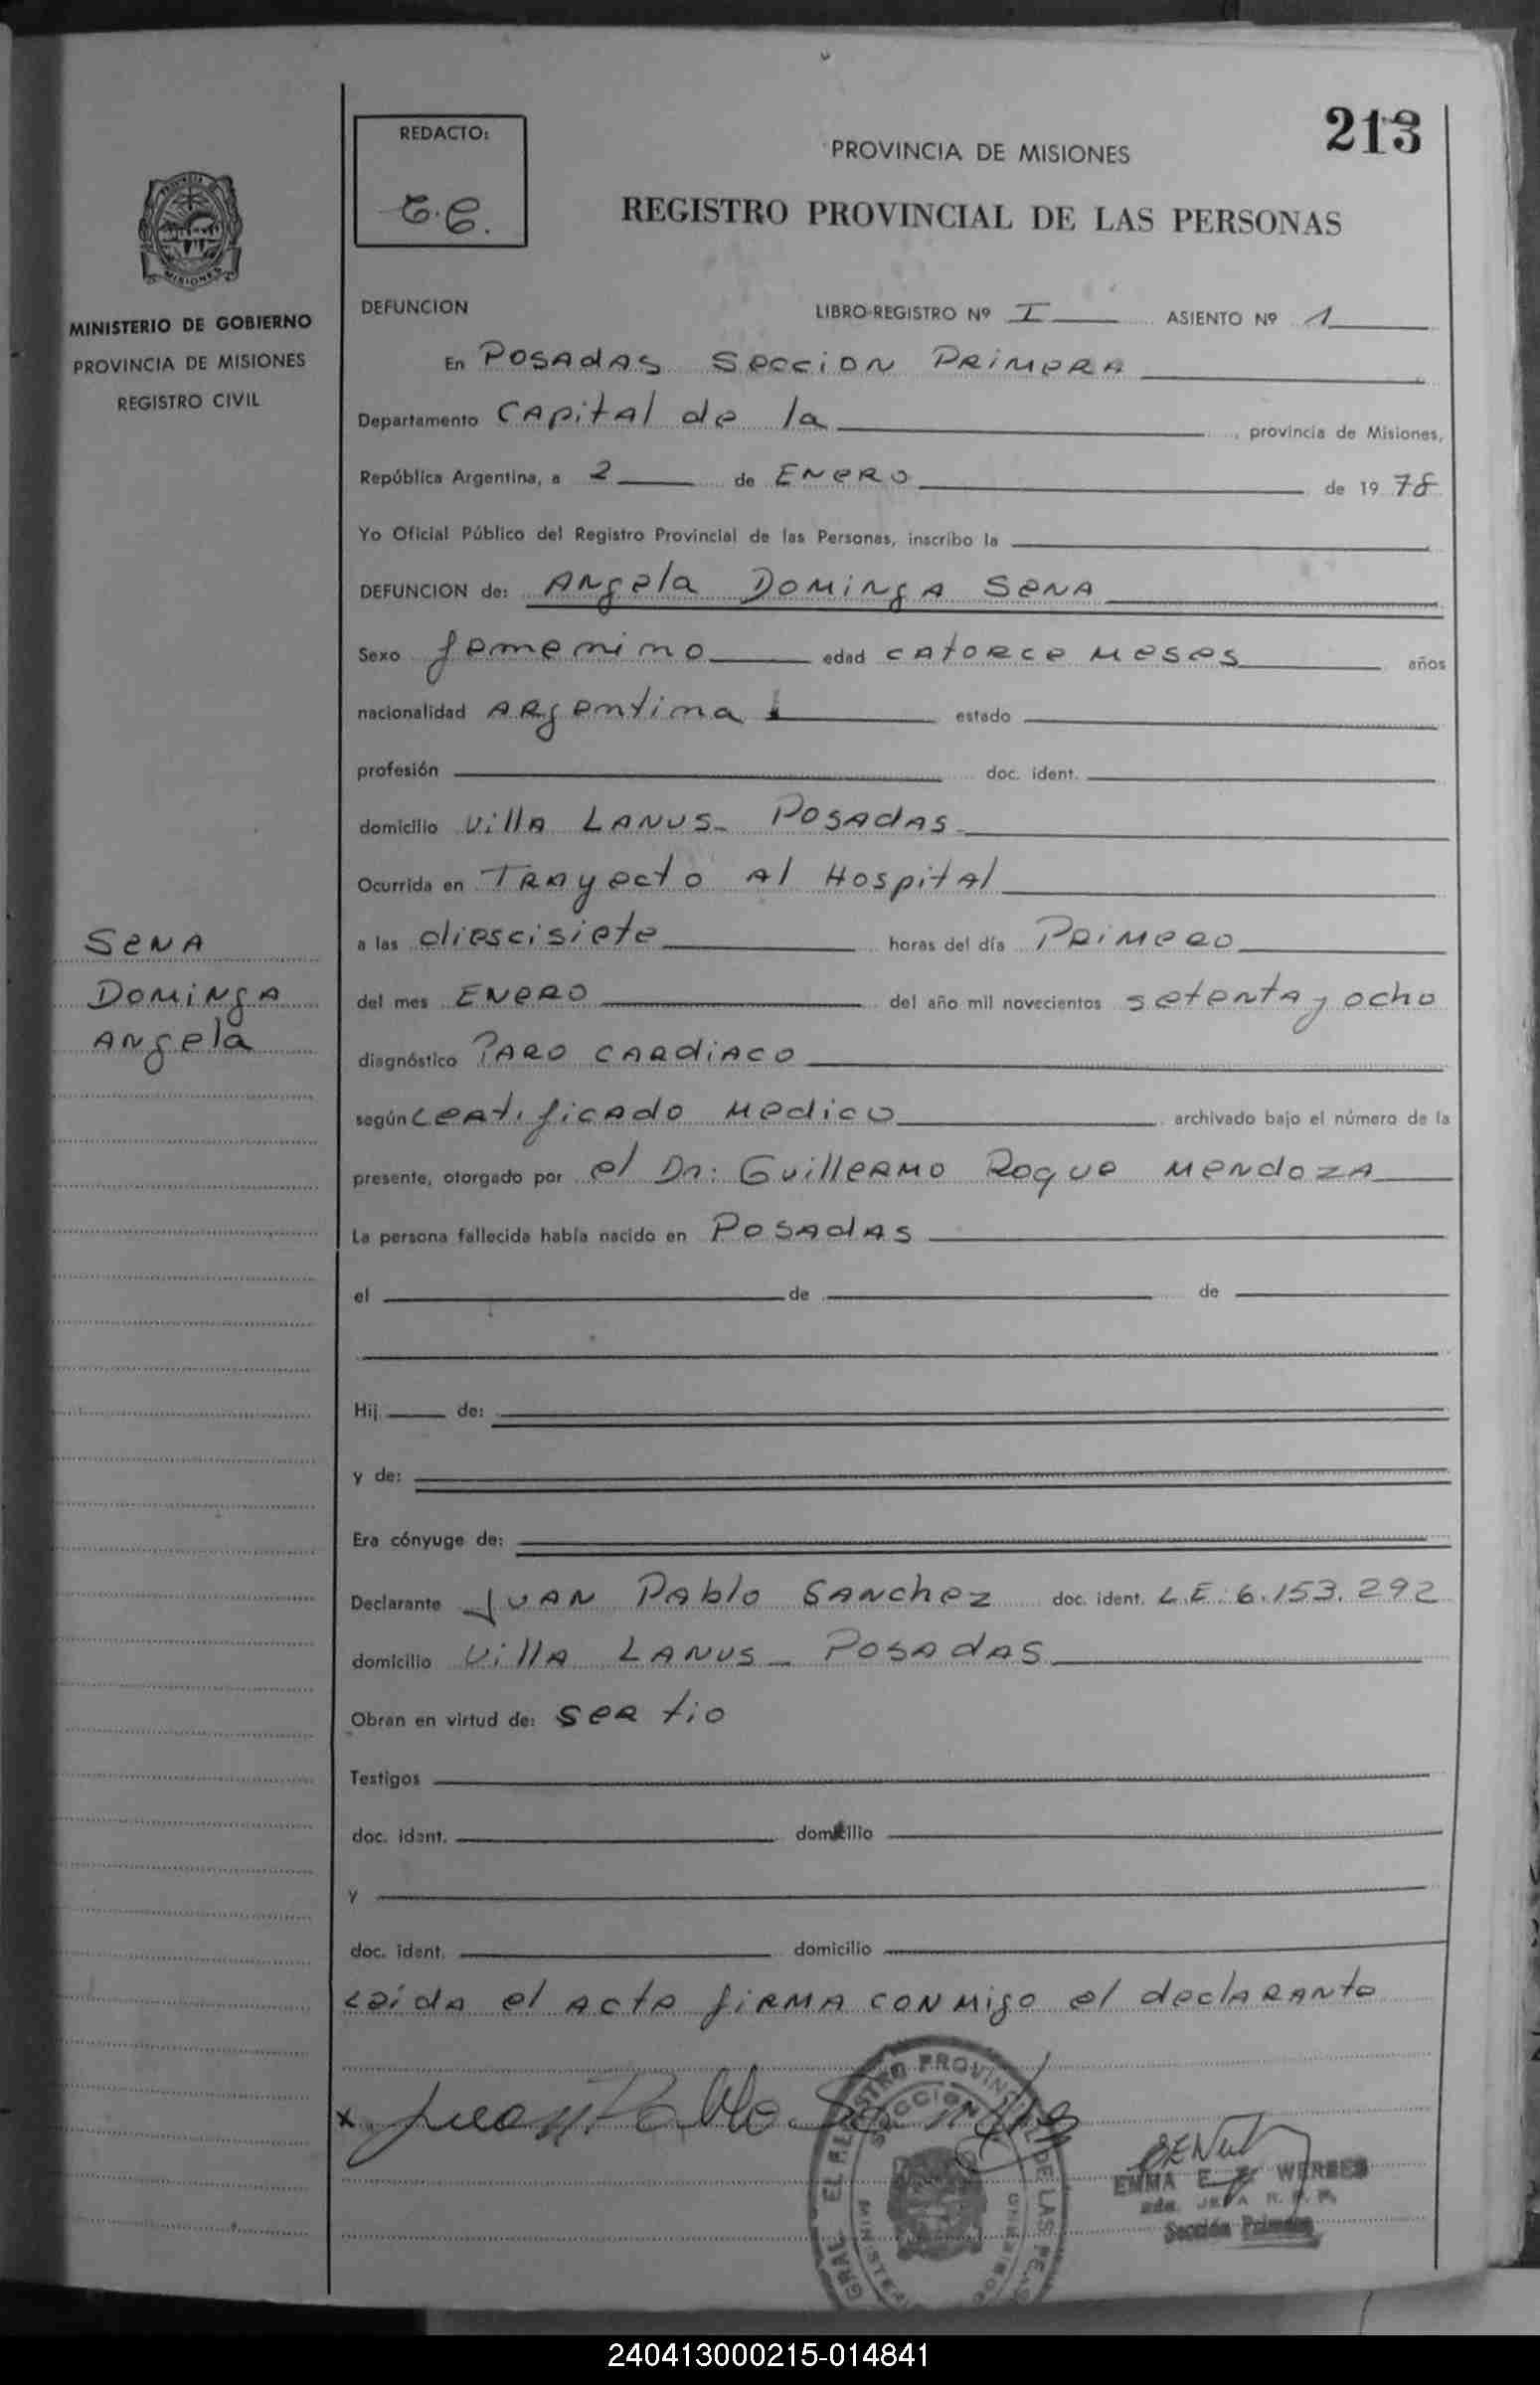 213
REDACTO:
PROVINCIA DE MISIONES
REGISTRO PROVINCIAL DE LAS PERSONAS
MISIONES
MINISTERIO DE GOBIERNO
PROVINCIA DE MISIONES
REGISTRO CIVIL
DEFUNCION LIBRO-REGISTRO Nº I ASIENTO Nº 1
En POSADAS SECCION PRIMERA
Departamento CAPITAL de la , provincia de Misiones,
República Argentina, a 2 de ENERO de 19 78
Yo Oficial Público del Registro Provincial de las Personas, inscribo la
DEFUNCION de: Angela DOMINGA SENA
Sexo femenino edad CATORCE MESES años
nacionalidad ARgentina estado
profesión doc. ident.
domicilio Villa LANUS- POSADAS
Ocurrida en TRAyecto Al HospitAl
a las diescisiete horas del día PRIMERO
del mes ENERO del año mil novecientos setenta y ocho
diagnóstico PARO CARDIACO
según ceRtificado Medico archivado bajo el número de la
presente, otorgado por el Dr: GuilleRMO Roque MENDOZA
La persona fallecida había nacido en POSADAS
el de de
Hij de:
y de:
Era cónyuge de:
Declarante JUAN PAblo SANchez doc. ident. L.E. 6.153.292
domicilio Villa LANUS - POSADAS
Obran en virtud de: seR tio
Testigos
doc. ident. domicilio
y
doc. ident. domicilio
Leida el ActA fiRMA CONMigo el declaRANte
SENA
DOMINGA
Angela
x Juan Pablo Sanchez
EMMA E. WERBES
JEFA R. P. P.
Sección Primera
240413000215-014841